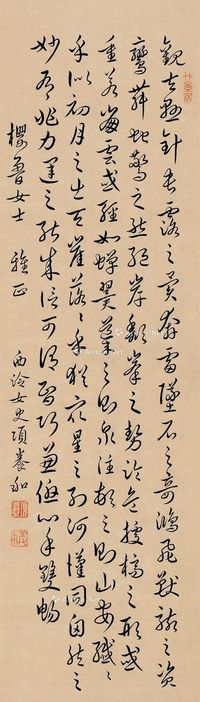 觀夫懸針垂露之異奔雷墜石之奇鴻飛獸駭之資
鸞舞蛇驚之態絕岸頹峯之勢臨危據槁之形或
重若崩雲或輕如蟬翼導之則泉注頓之則山安纖〻
乎似初月之出天崖落〻乎猶衆星之列河漢同自然之
妙有非力運之能成信可謂智巧兼優心手雙暢
櫻魯女士 雅正
西泠女史項養和